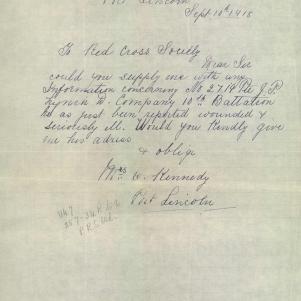 Port Lincoln
Sept 10th 1918
To Red Cross Society
Dear Sir
could you supply me with any
Information concerning No 2714 Pte J. P.
Lynch D. Company 10th Battalion
he as just been reported wounded &
seriously ill. Would you Kindly give
me his adress
& oblige
Mrs W. Kennedy
Port Lincoln